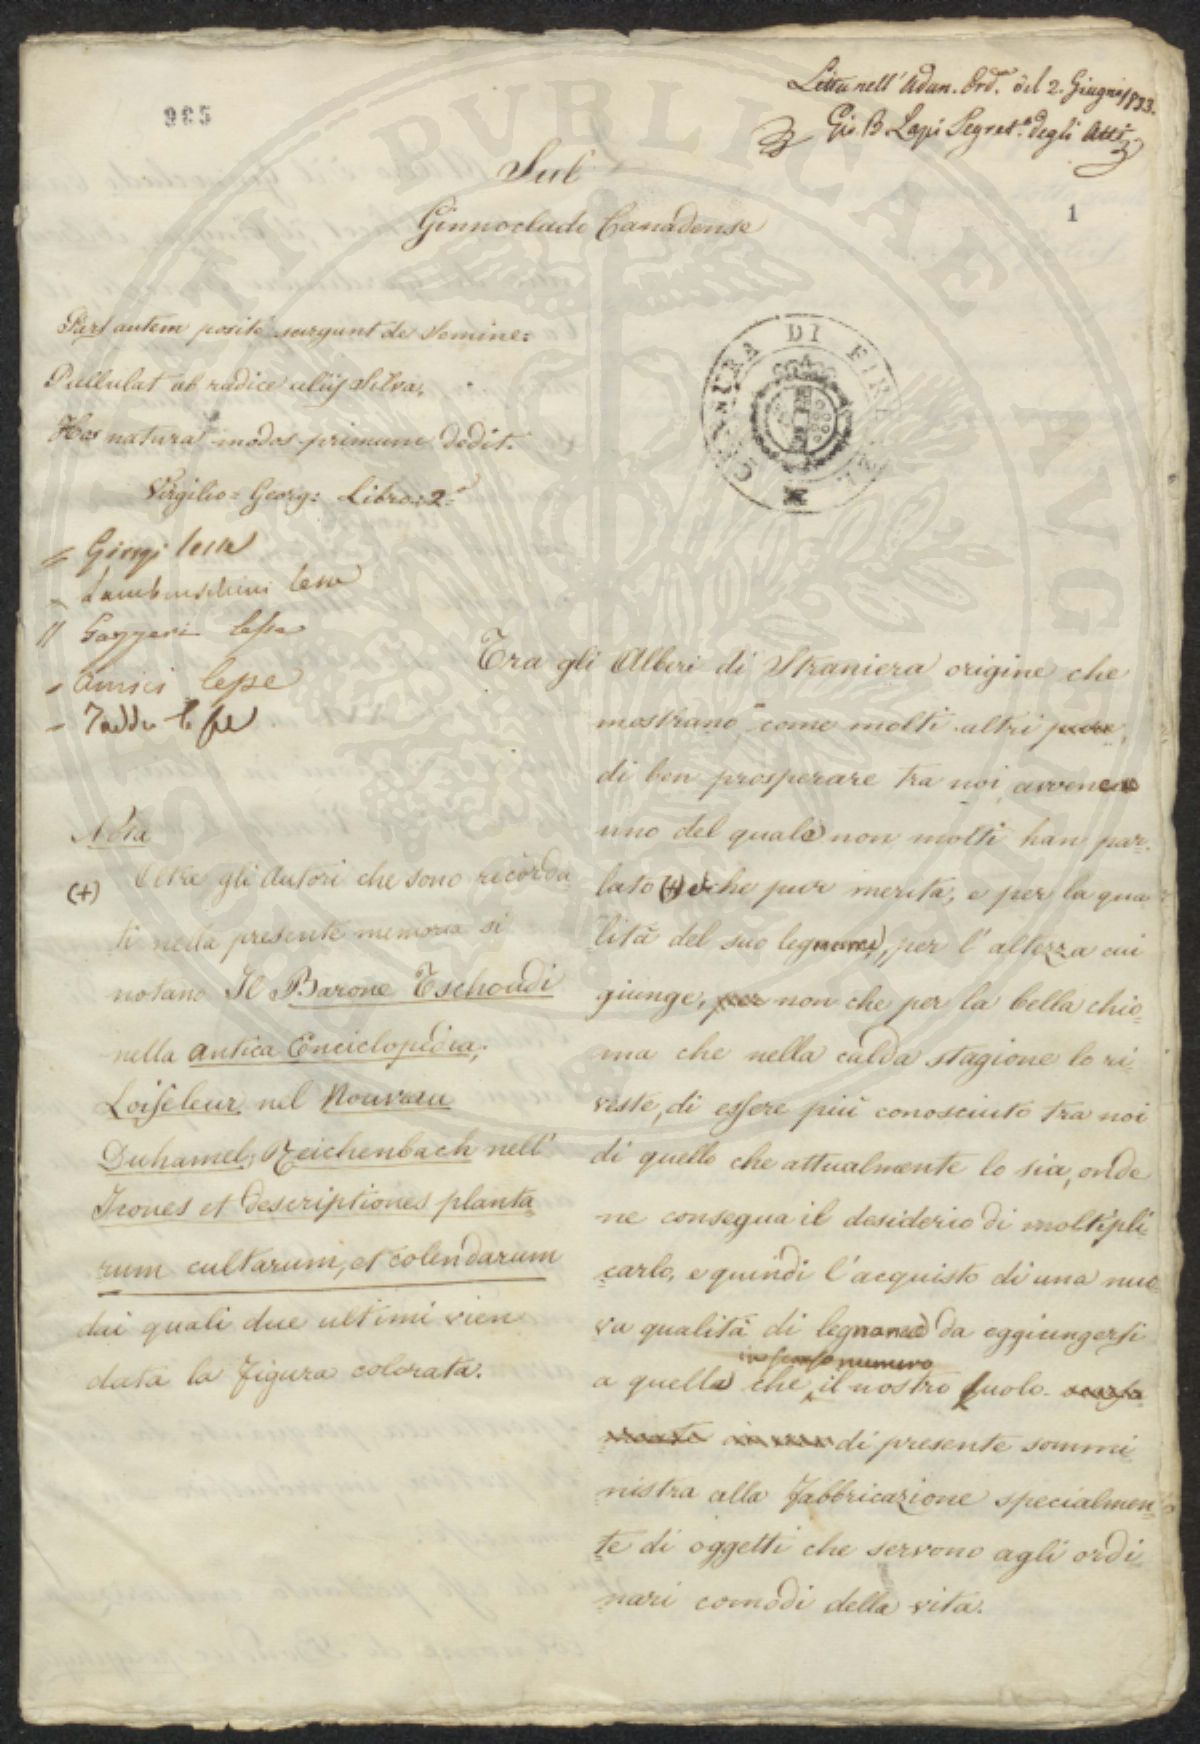 965
Letta nell' Adun. Ord. del 2. Giugno 1833.
Gio. B. Lapi Segret.º degli Atti
1
Sul
Ginnoclado Canadense
Pars autem posito surgunt de Semine:
Pullulat ab radice aliis Silva,
Hos natura modos primum dedit.
Virgilio = Georg: Libro: 2.º
Giorgi lesse
Lambruschini lesse
Gazzeri lesse
Amici lesse
Taddei lesse
Nota
(+) Oltre gli Autori che sono ricorda
ti nella presente memoria si
notano Il Barone Tschoudi
nella antica Enciclopedia,
Loiseleur nel Nouveau
Duhamel, Reichenbach nell'
Icones et descriptiones planta
rum cultarum, et colendarum
dai quali due ultimi vien
data la figura colorata.
Tra gli Alberi di Straniera origine che
mostrano come molti altri pure,
di ben prosperare tra noi avvene
uno del quale non molti han par-
lato (+) che pur merita, e per la qua
lità del suo legname, per l'altezza cui
giunge, per non che per la bella chio-
ma che nella calda stagione lo ri
veste, di essere più conosciuto tra noi
di quello che attualmente lo sia, onde
ne consegua il desiderio di moltipli
carlo, e quindi l'acquisto di una nuo-
va qualità di legname da aggiungersi
in scarso numero
a quelle che il nostro suolo
di presente sommi
nistra alla fabbricazione specialmen-
te di oggetti che servono agli ordi
nari comodi della vita.
CULTURA DI FIRENZE
SALUTI PUBLICAE AUG